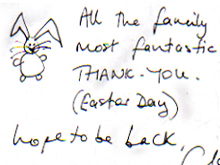 All the family
most fantastic
THANK-YOU.
(Easter Day)
hope to be back,